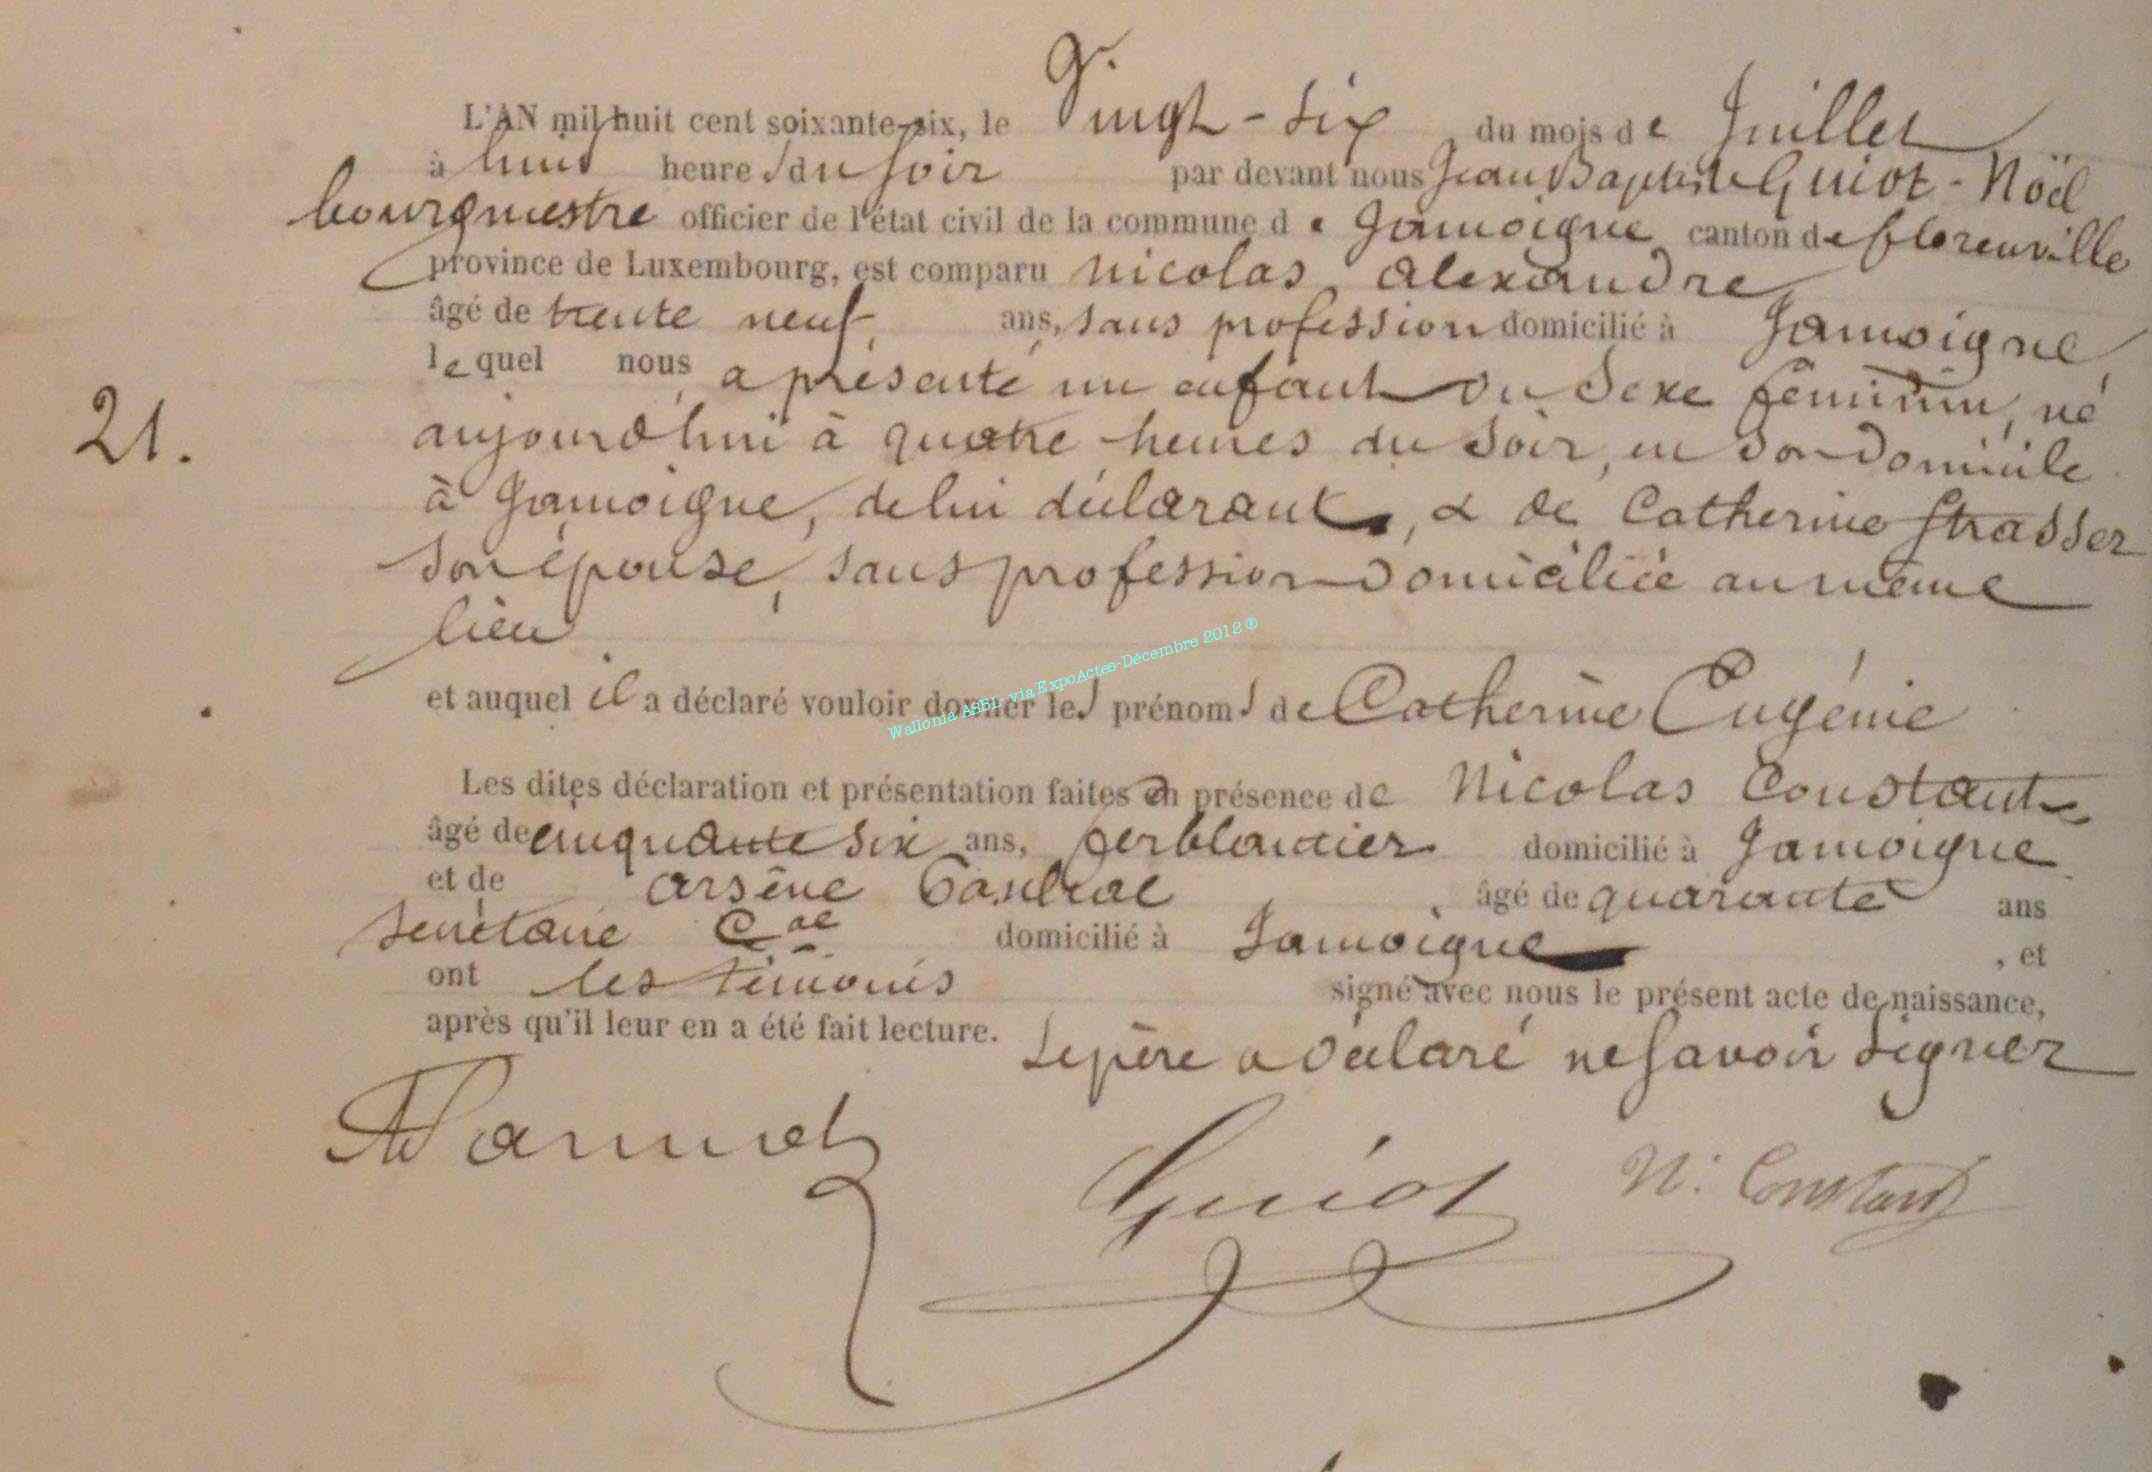 L'AN mil huit cent soixante-six, le Vingt-six du mois de Juillet
à huit heures du soir par devant nous Jean Baptiste Guiot-Noël
bourgmestre officier de l'état civil de la commune de Jamoigne canton de florenville
province de Luxembourg, est comparu Nicolas Alexandre
âgé de trente neuf, ans, sans profession domicilié à Jamoigne,
le quel nous a présenté un enfant du sexe féminin, né
21. aujourd'hui à quatre heures du soir, en son domicile
à Jamoigne, de lui déclarant, & de Catherine Strasser
son épouse, sans profession domiciliée au même
lieu
et auquel il a déclaré vouloir donner les prénoms de Catherine Eugénie
Wallonia ASBL via ExpoActes-Décembre 2012 ®
Les dites déclaration et présentation faites en présence de Nicolas Constant
âgé de cinquante six ans, ferblantier domicilié à Jamoigne
et de Arsène âgé de quarante ans
secrétaire Cal domicilié à Jamoigne, et
ont les témoins signé avec nous le présent acte de naissance,
après qu'il leur en a été fait lecture. Le père a déclaré ne savoir signer
Guiot N. Constant